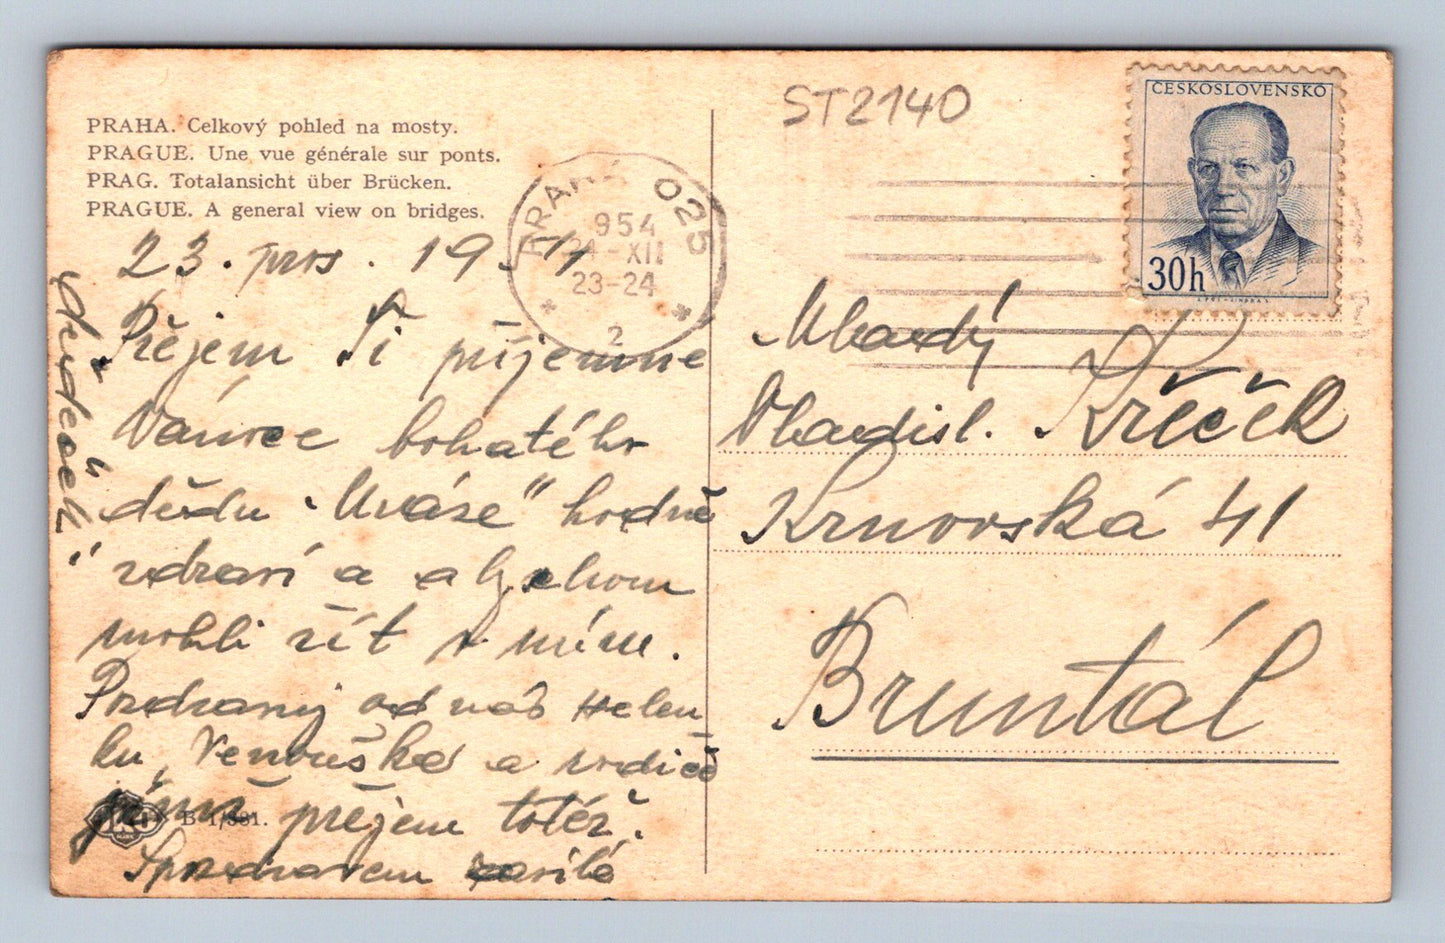 PRAHA. Celkový pohled na mosty.
PRAGUE. Une vue générale sur ponts.
PRAG. Totalansicht über Brücken.
PRAGUE. A general view on bridges.
ST2140
ČESKOSLOVENSKO
30h
PRAHA 025
954
24-XII
23-24
2
23. pros. 19
Přejem Ti příjemné
Vánoce bohatého
dědu „Mráze" hodně
zdraví a abychom
mohli žít v míru.
Pozdravuj od nás Helen
ku, Venouška a rodičů
přejem totéž.
S pozdravem
dědeček
Mladý
Vladisl. Křeček
Krnovská 41
Bruntál
B 1/331.